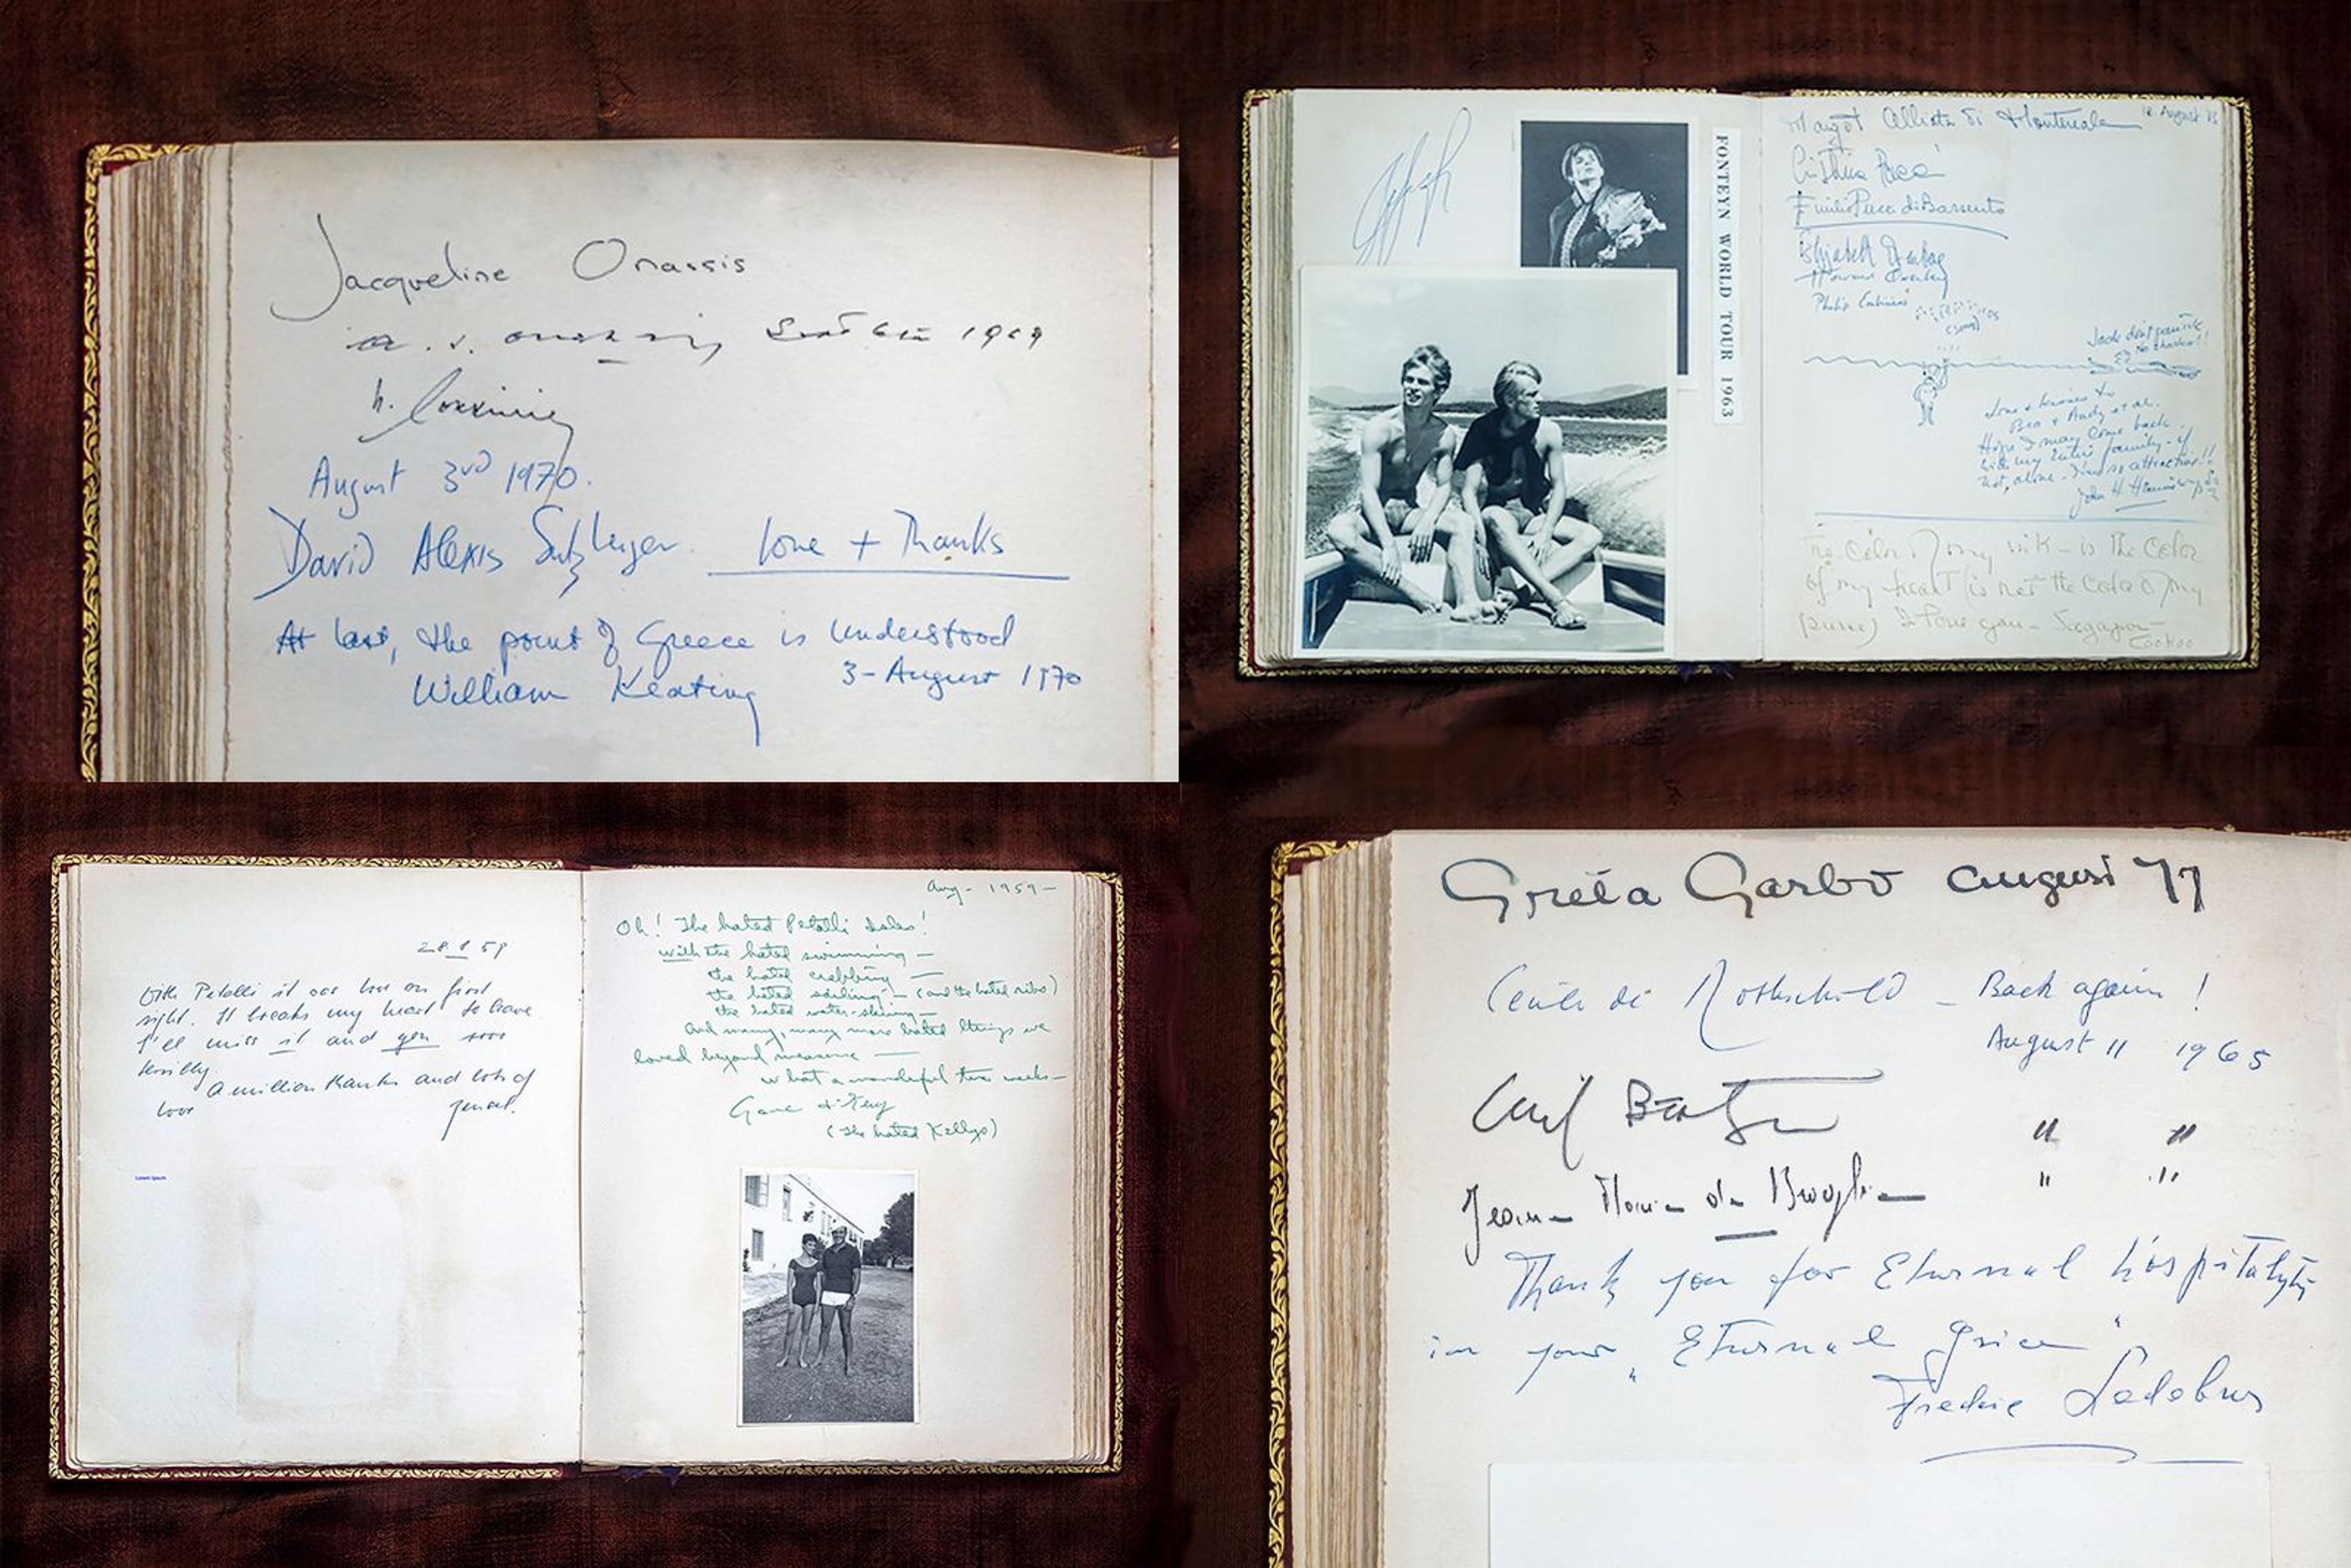 Jacqueline Onassis
1969
August 3rd 1970.
David Alexis Sulzberger. love + Thanks
At last, the point of Greece is understood
William Keating 3-August 1970
FONTEYN WORLD TOUR 1963
12 August
Margot
Emilio Pucci di Barsento
Philip
Jack don't panic,
No sharks!!
Love + kisses to
Bea + Andy et al.
Hope I may come back
with my entire family - if
not, alone - I'm so attractive!!
John H.
The color of my ink - is the color
of my heart (is not the color of my
purse) I love you -
28.8.59
With Petalli it was love on first
sight. It breaks my heart to leave
I'll miss it and you sooo
terribly.
A million thanks and lots of
love
Aug - 1959 -
Oh! The hated Petalli Isles!
with the hated swimming -
the hated crabbing -
the hated sailing - (and the hated ribs)
the hated water-skiing -
and many, many more hated things we
loved beyond measure -
what a wonderful two weeks -
Gene
(The hated Kellys)
Lorem Ipsum
Greta Garbo august 77
Cecile de Rothschild - Back again!
August 11 1965
Cecil Beaton " "
" "
Thank you for Eternal hospitality
in your „Eternal Grice"
Fredric Ledebur